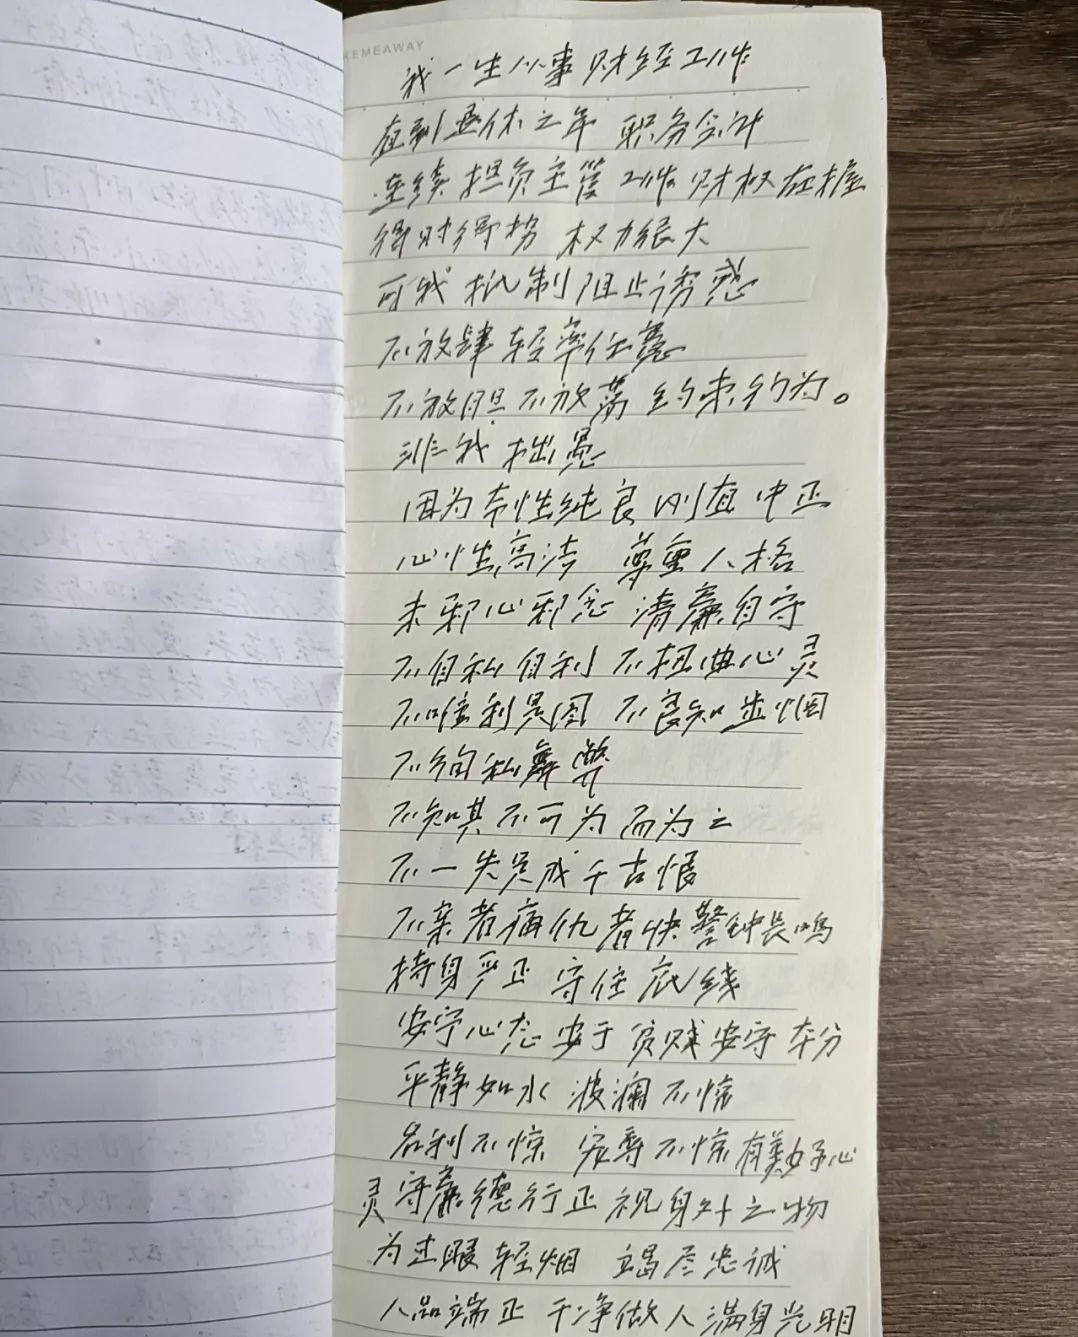 KEMEAWAY
我一生从事财经工作
在到退休之年 职务会计
连续担负主管工作 财权在握
得财得势 权力很大
可我抵制阻止诱惑
不放肆轻率任意
不放胆不放荡 约束行为。
非我拙愚
因为本性纯良 刚直中正
心性高洁 尊重人格
未邪心邪念 清廉自守
不自私自利 不扭曲心灵
不唯利是图 不良知步烟
不徇私舞弊
不知其不可为而为之
不一失足成千古恨
不亲者痛仇者快 警钟长鸣
持身严正 守住底线
安守心态 安于贫贱 安守本分
平静如水 波澜不惊
名利不惊 宠辱不惊 有美好心
灵守廉德行正 视身外之物
为过眼轻烟 竭尽忠诚
人品端正 干净做人 满身光明